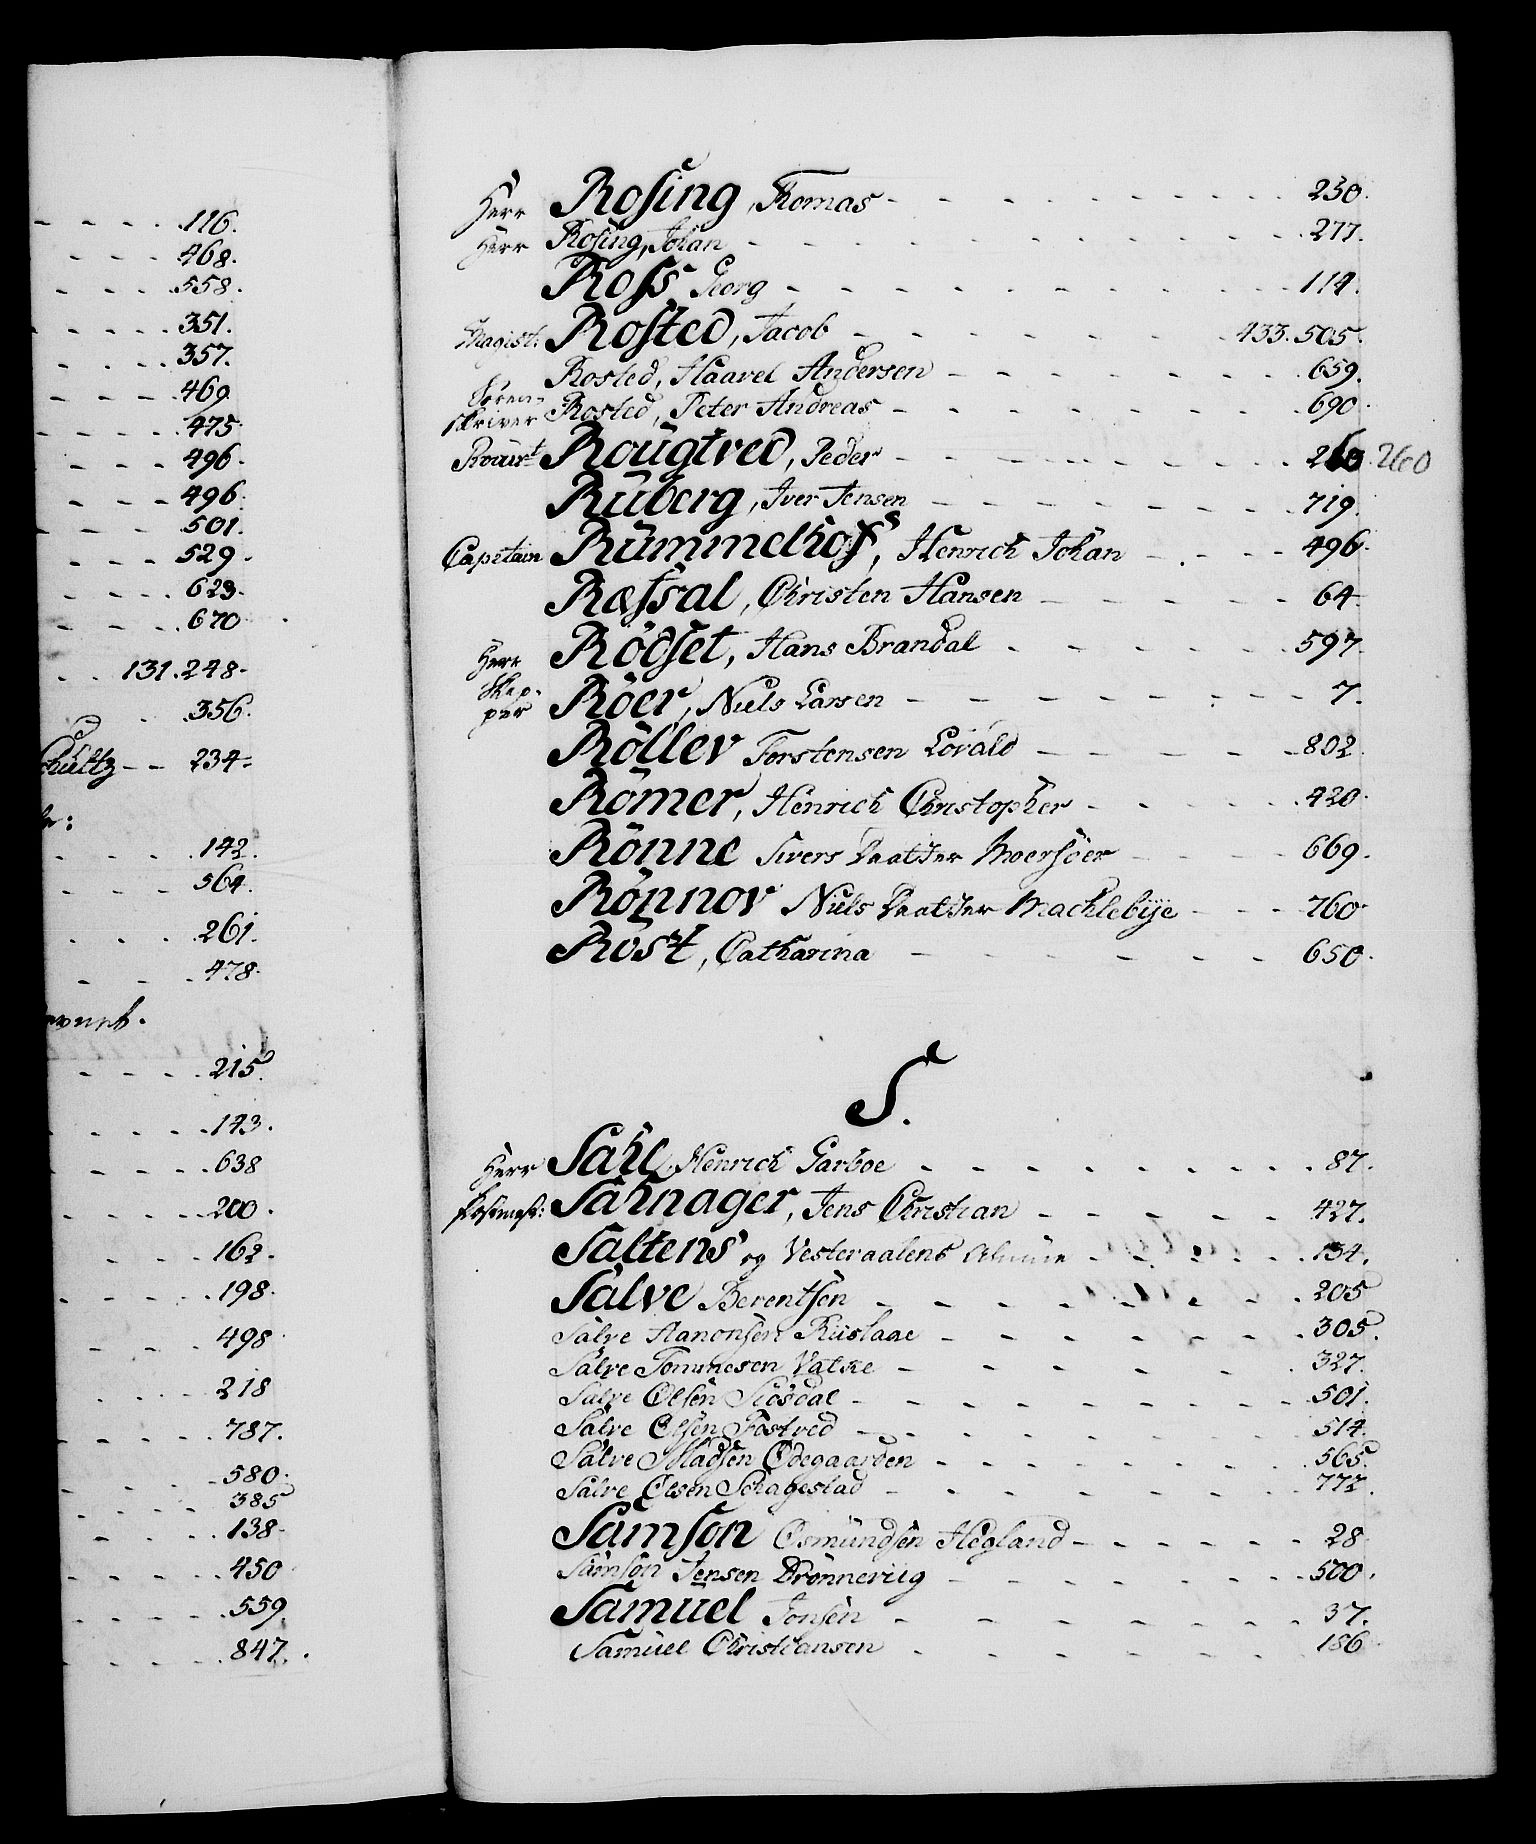 116.
468.
558.
351.
357.
469
475
496.
496
501.
529.
623.
670
131.248.
356.
234.
142.
564.
261.
478.
215.
143.
638
200.
162.
198.
498
218
787.
580.
385
138.
450
559.
847.
Herr Rosing, Tomas 230.
Herr Rosing, Johan 277.
Ross Georg 114.
Magist: Rosted, Jacob 433.505.
Rosted, Haavel Andersen 659.
Soren-
skriver Rosted, Peter Andreas 690
Rougtved, Peder 260. 260
Ruberg, Iver Jensen 719.
Capitain Rummelhof, Henrich Johan 496.
Ræssal, Christen Hansen 64
Herr Rödset, Hans Brandal 597.
Skep-
per Röer, Niels Larsen 7.
Röllev Torstensen Lovald 802.
Römer, Henrich Christopher 420.
Rönne Sivers Daatter Moersöer 669.
Rönnov Niels Daatter Machlebÿe 760.
Röst, Catharina 650.
S.
Herr Sahl, Henrich Garboe 87.
Postmest: Sahnager, Jens Christian 427.
Saltens og Vesteraalens Almue 134.
Salve Berentsen 205
Salve Aanonsen Riislaae 305.
Salve Tommesen Vatne 327.
Salve Olsen Siösdal 501.
Salve Olsen Fostved 514.
Salve Madsen Ödegaarden 565.
Salve Olsen Schagestad 772.
Samson Osmundsen Hegland 28
Samson Jensen Brönneriig 500.
Samuel Jonsen 37.
Samuel Christiansen 186.